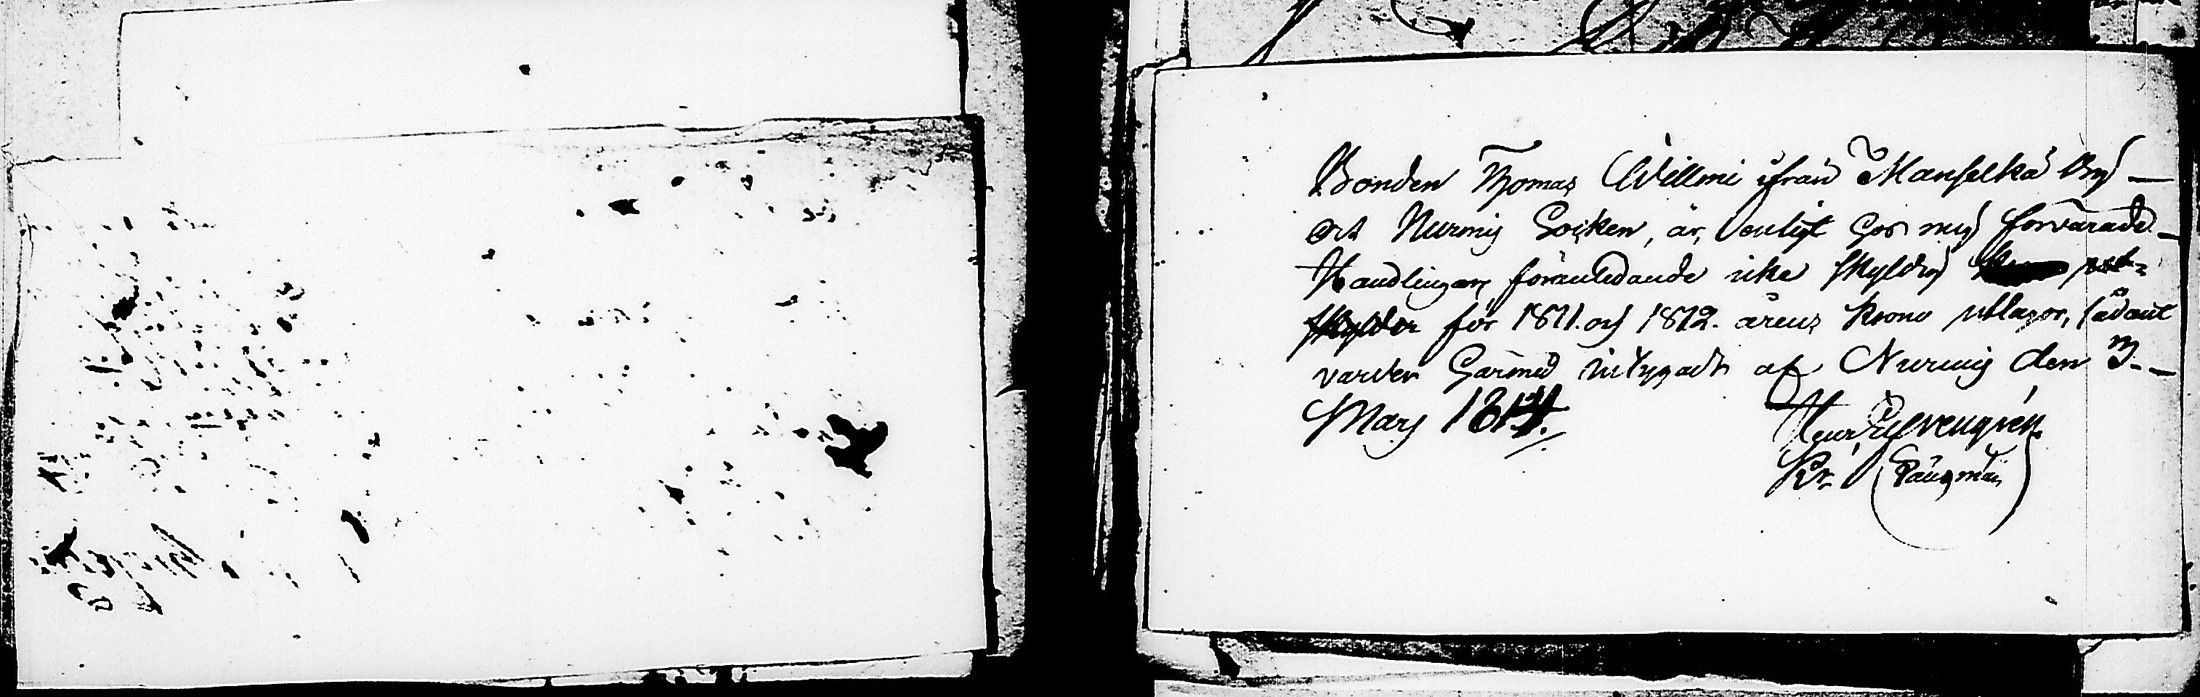 Bonden Thomas Willmi ifrån Manselkä By
och Nurmis Socken, är, enligt hos mig förvarade
Handlingar, förenledande icke skyldig ut-
skylder för 1811. och 1812. årens krono utlagor, sådant
varder härmed intygadt af Nurmis den 3.
Marj 1814.
Kr. Länsman